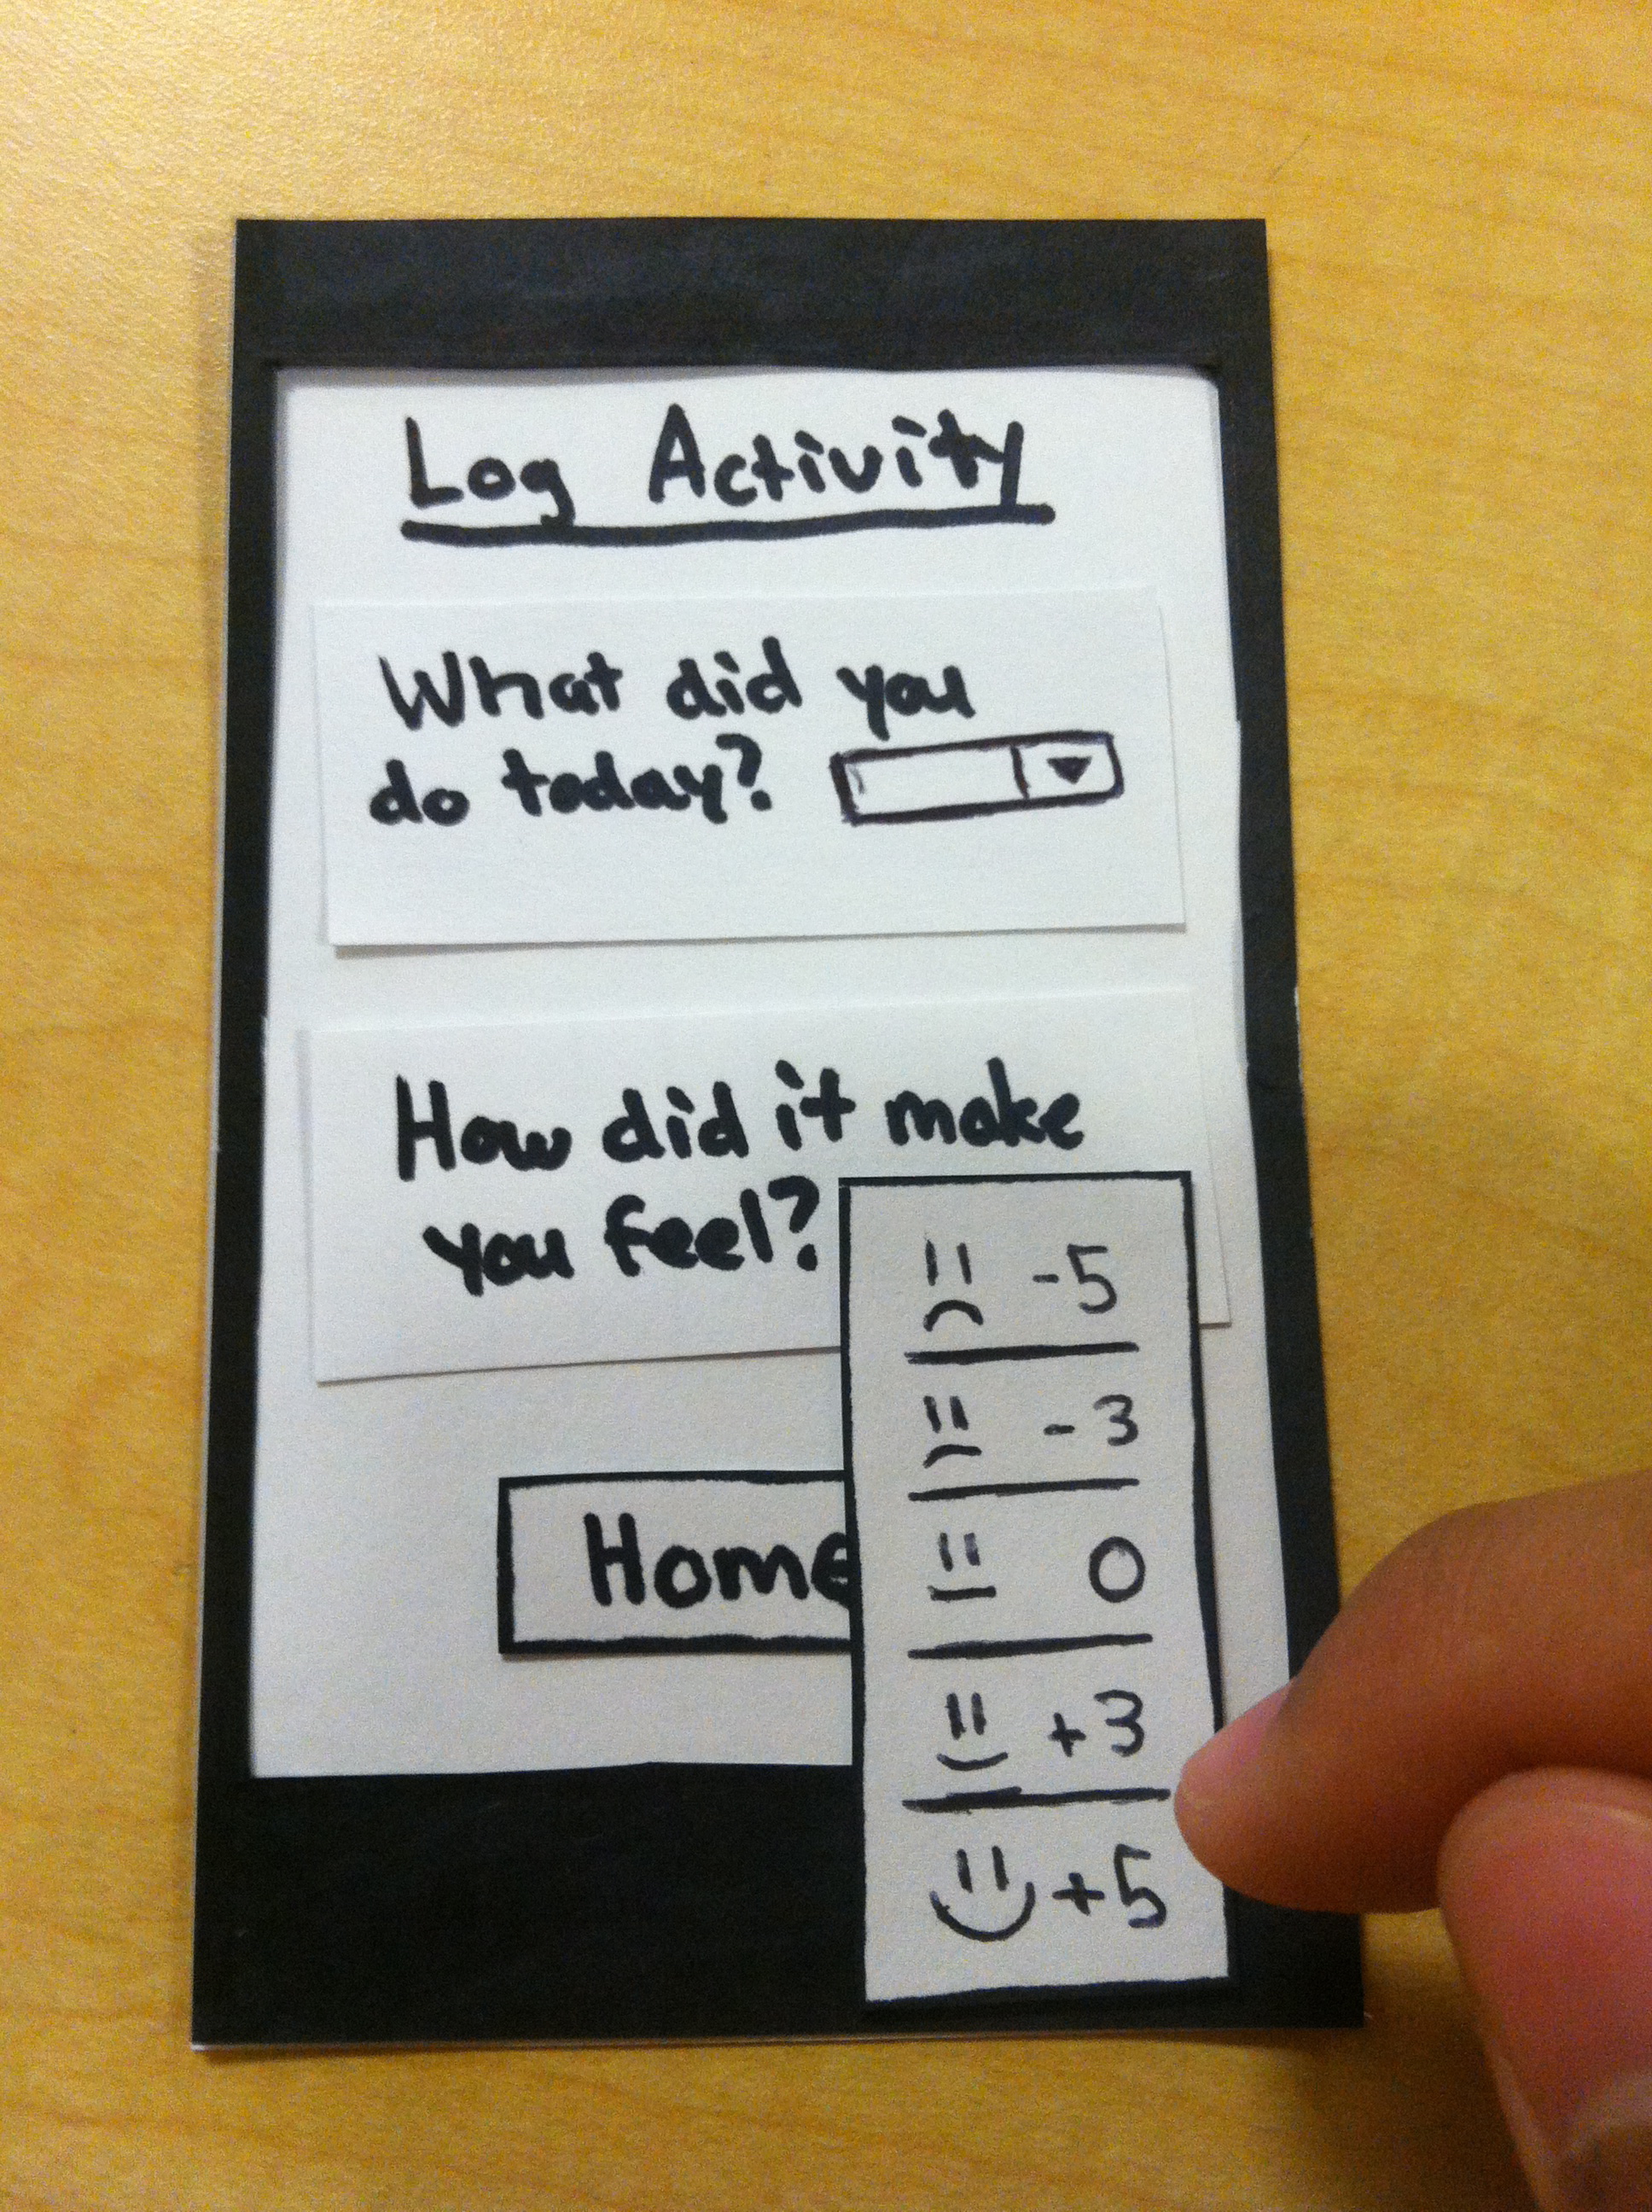 Log Activity
What did you
do today?
How did it make
you feel?
-5
-3
0
+3
+5
Home